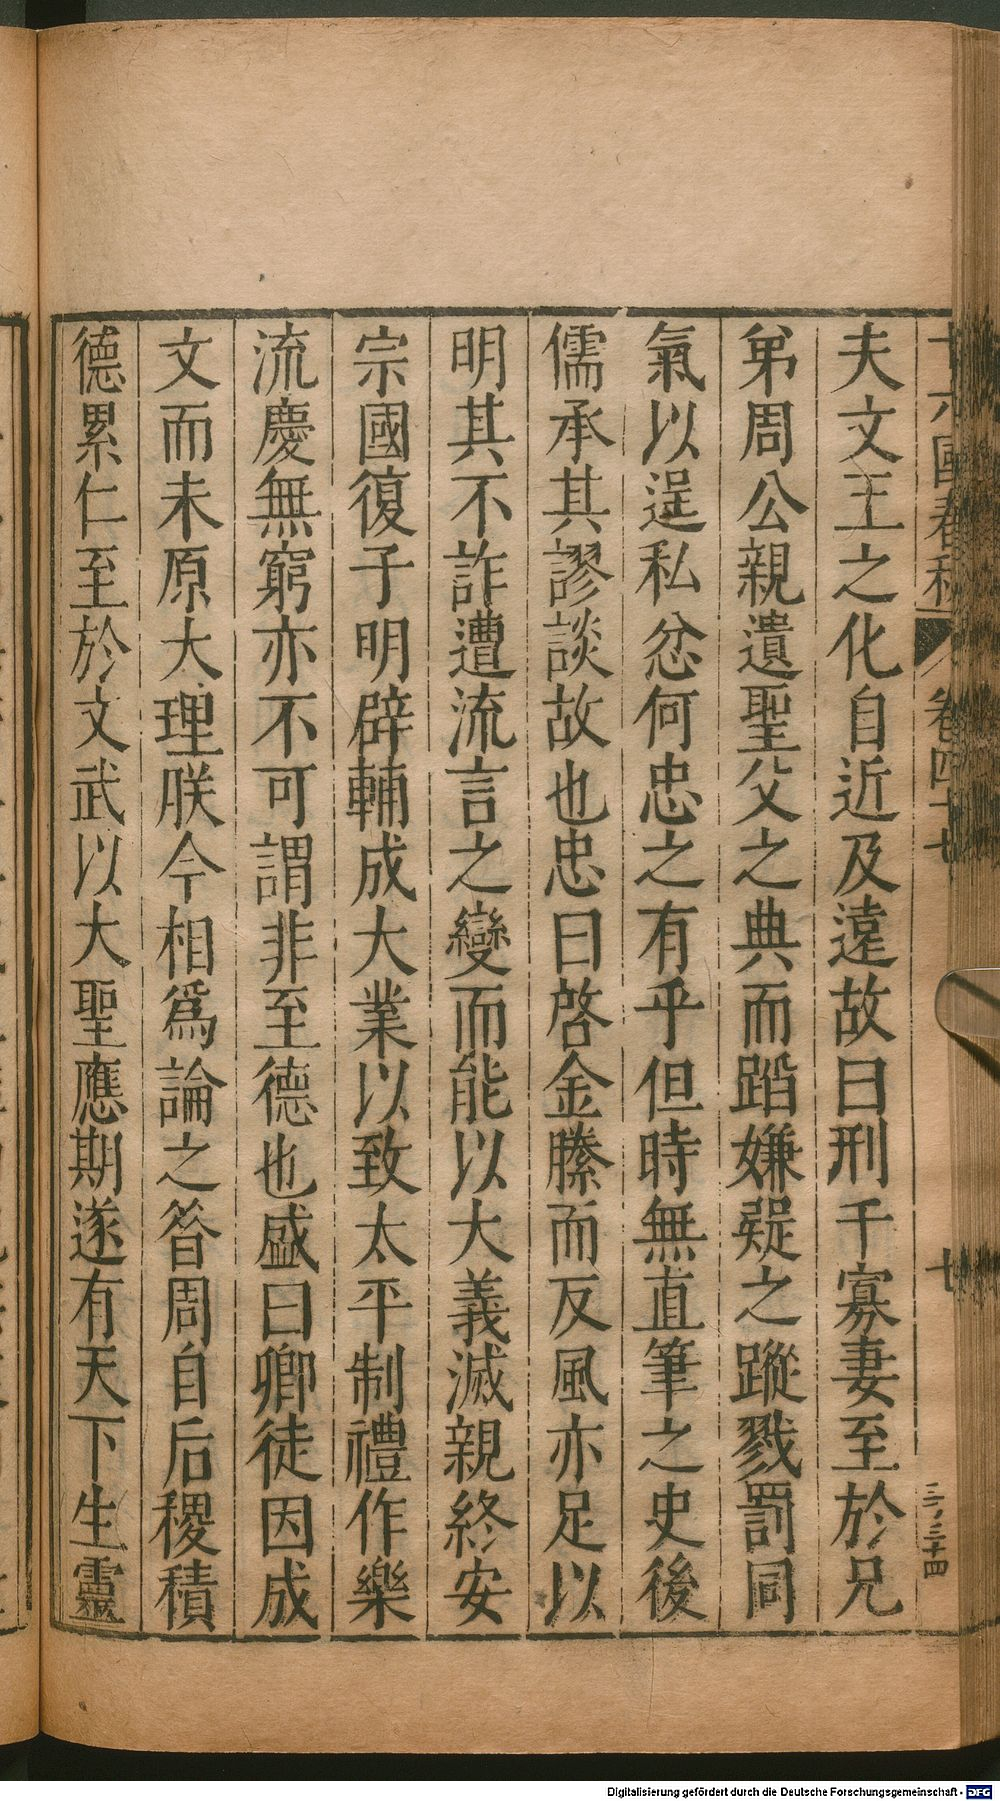 十六國春秋 卷四十七 七
三ノ三十四
夫文王之化自近及遠故曰刑于寡妻至於兄
弟周公親遺聖父之典而蹈嫌疑之蹤戮罰同
氣以逞私忿何忠之有乎但時無直筆之史後
儒承其謬談故也忠曰啓金縢而反風亦足以
明其不詐遭流言之變而能以大義滅親終安
宗國復子明辟輔成大業以致太平制禮作樂
流慶無窮亦不可謂非至德也盛曰卿徒因成
文而未原大理朕今相爲論之答周自后稷積
德累仁至於文武以大聖應期遂有天下生靈
Digitalisierung gefördert durch die Deutsche Forschungsgemeinschaft - DFG